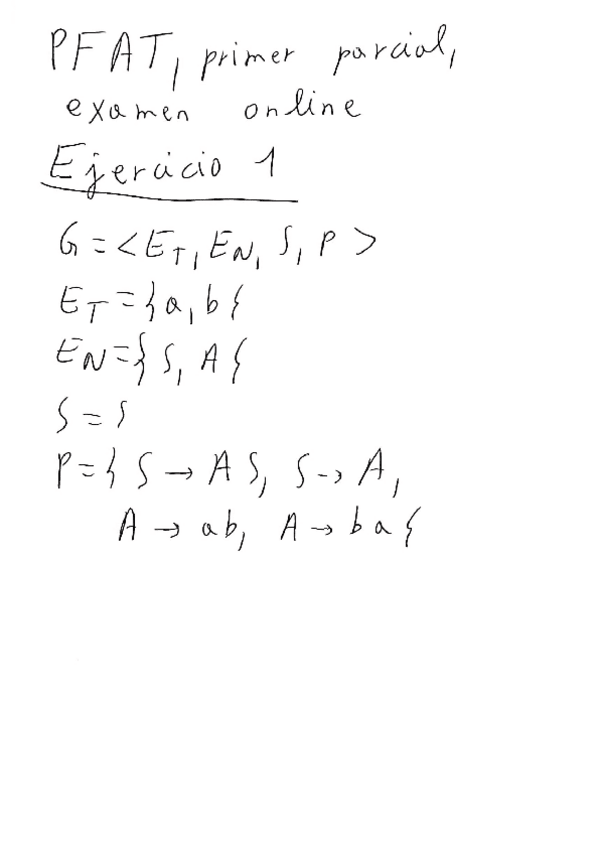 PFAT, primer parcial,
examen online
Ejercicio 1
G = < E_T, E_N, S, P >
E_T = {a, b}
E_N = {S, A}
S = S
P = {S → AS, S → A,
A → ab, A → ba}